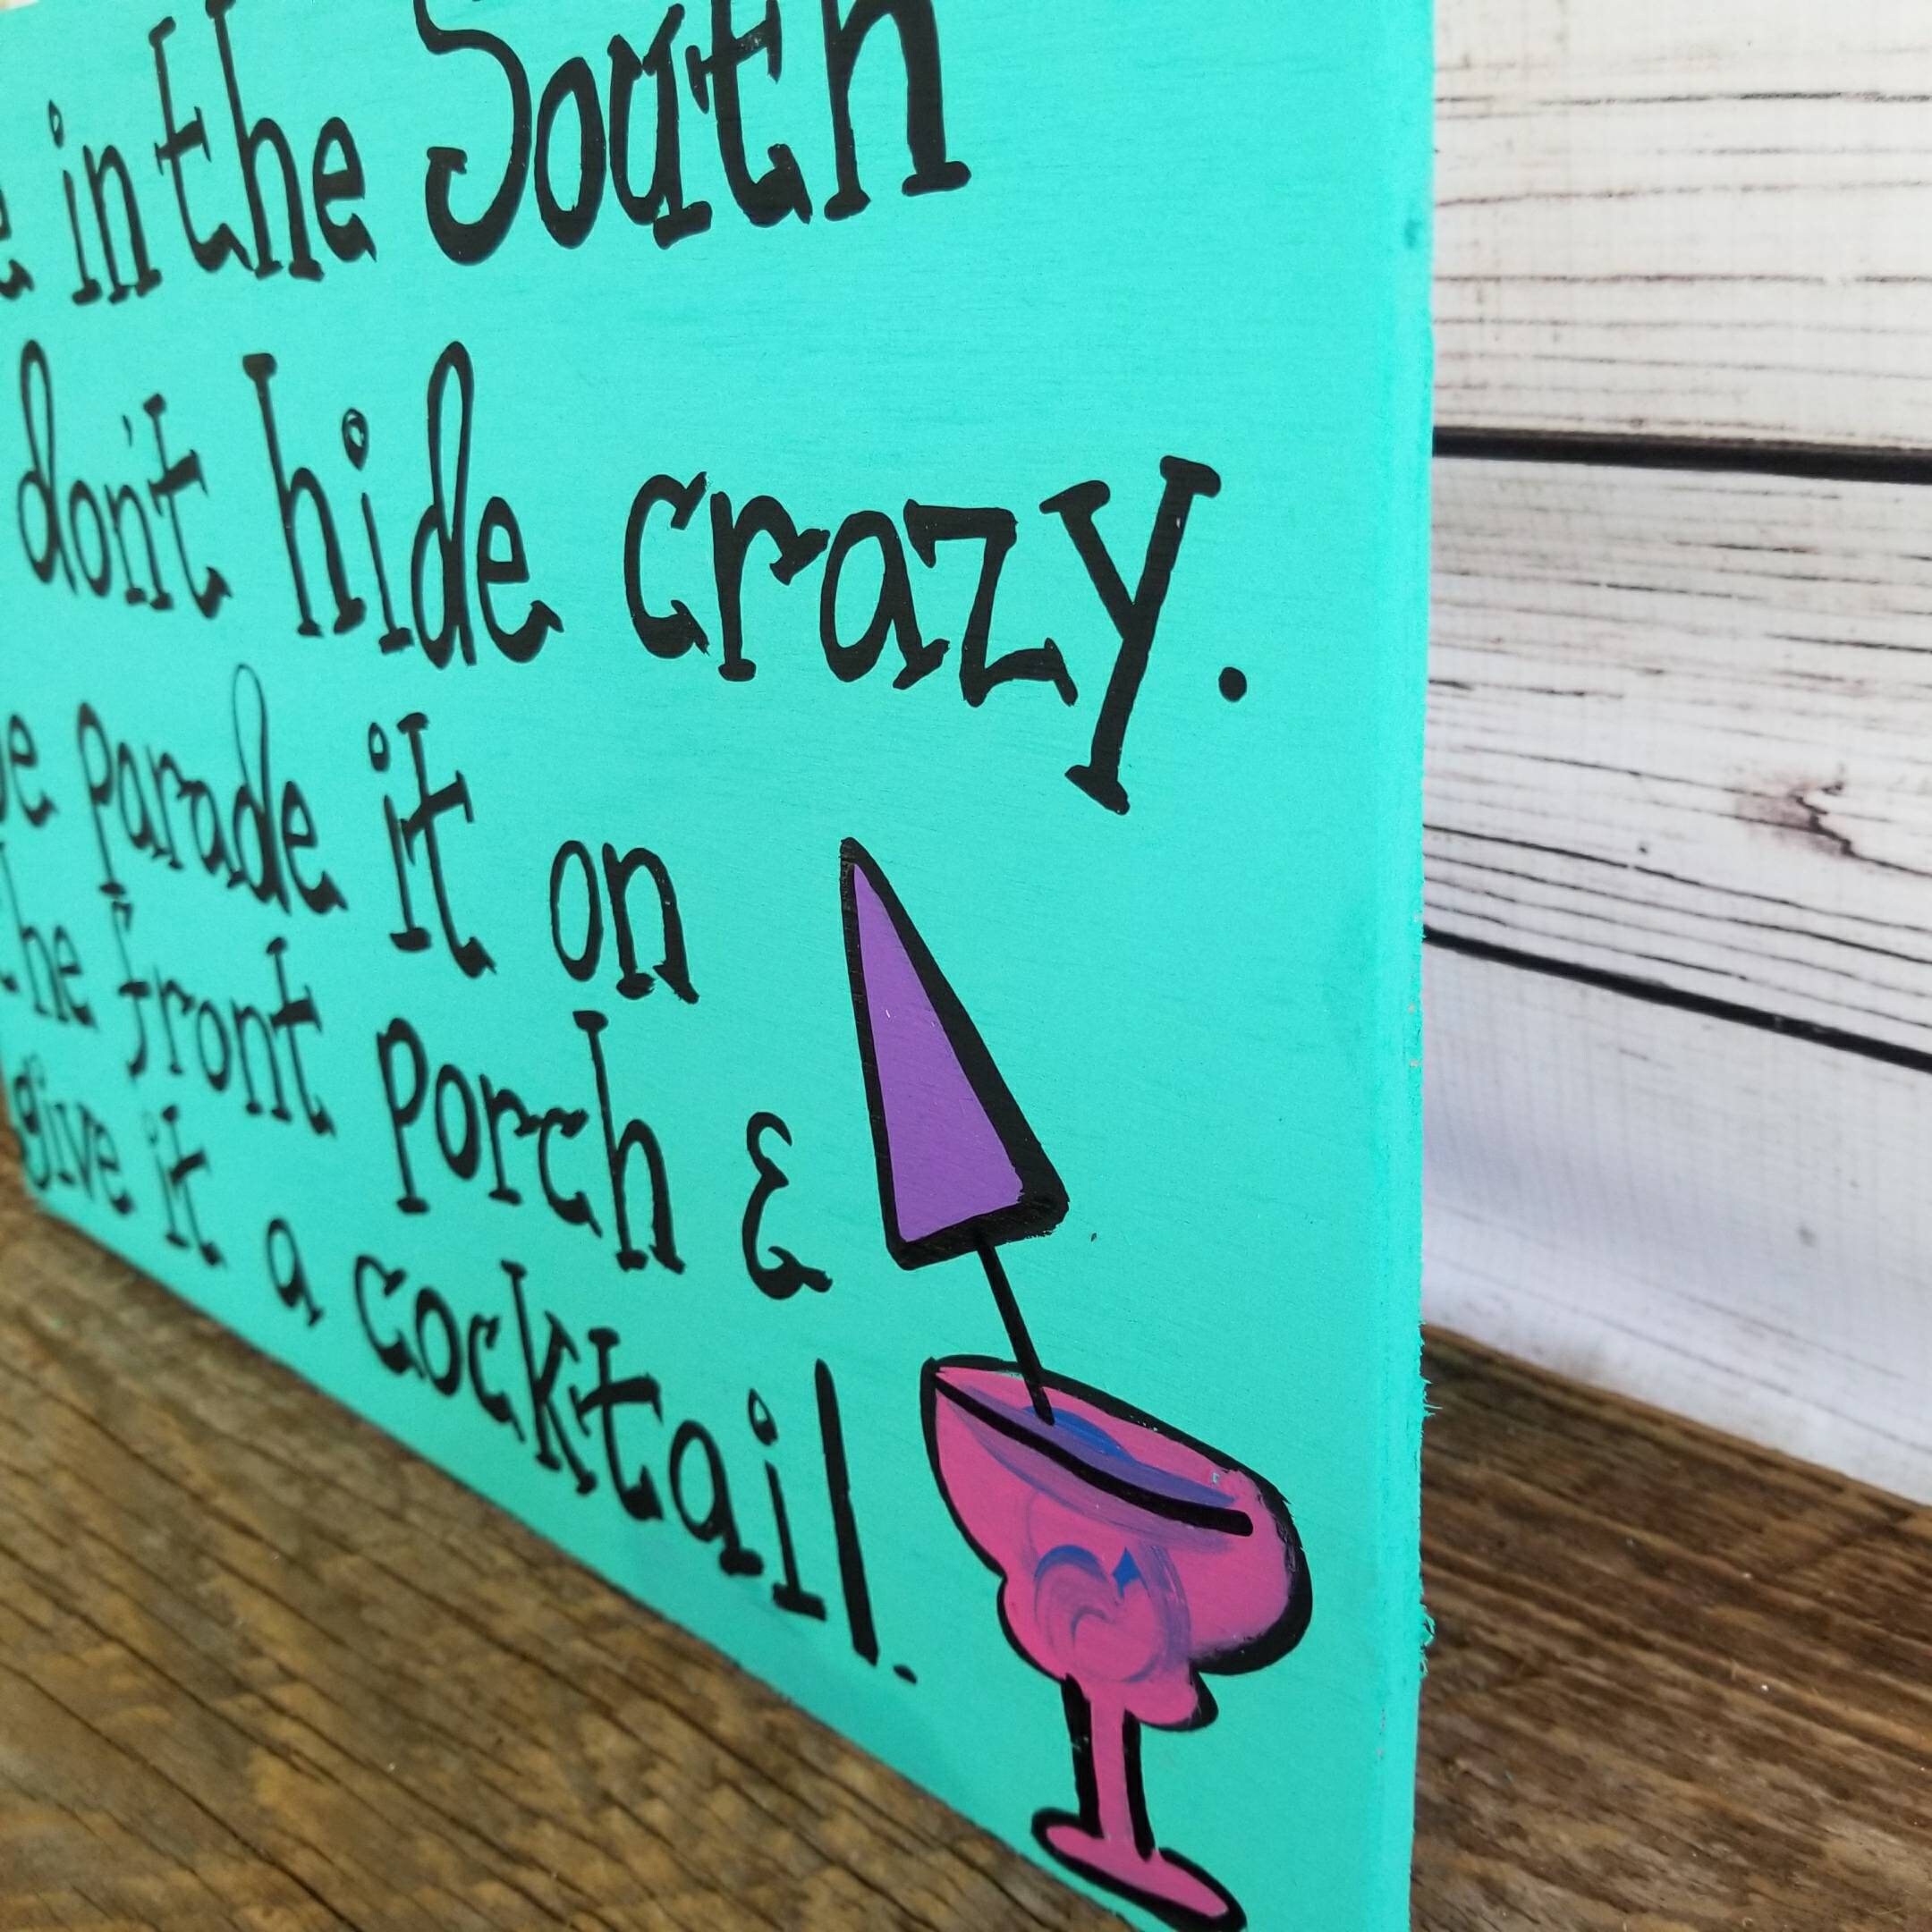 in the South
don't hide crazy.
parade it on
the front porch &
give it a cocktail.